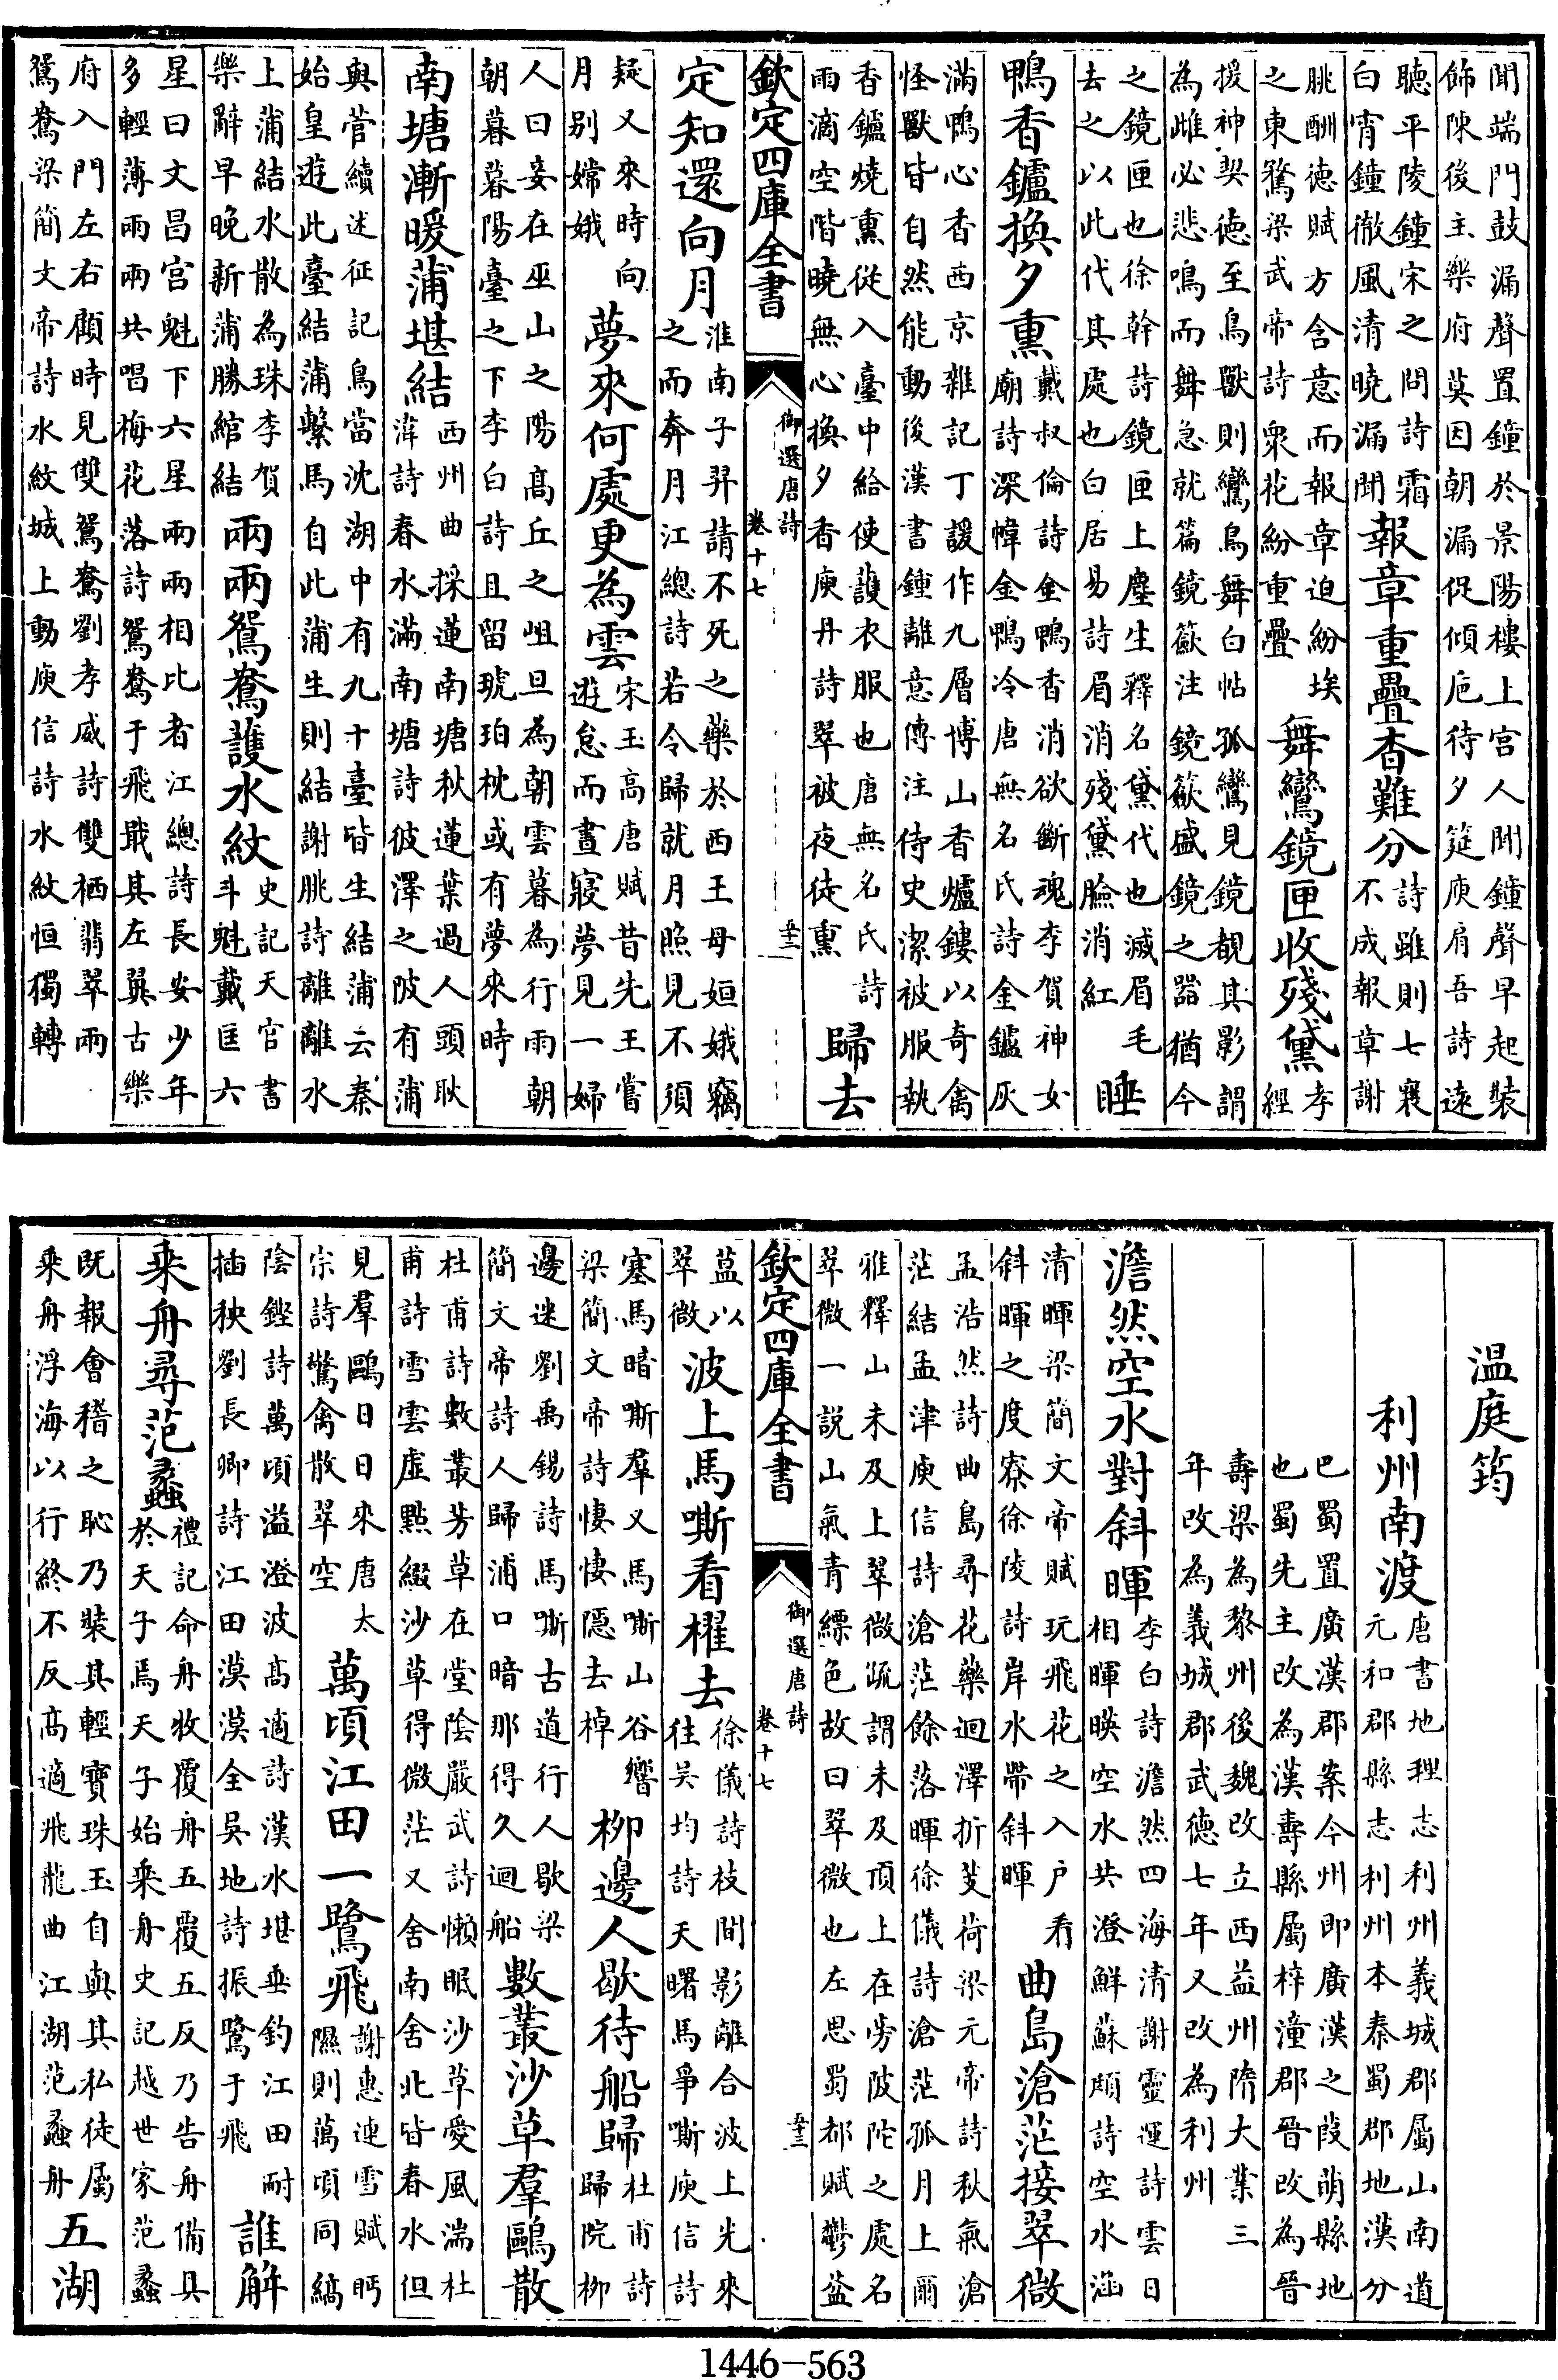 聞端門鼓漏聲置鐘於景陽樓上宮人聞鐘聲早起裝
飾陳後主樂府莫因朝漏促傾巵待夕筵庾肩吾詩遠
聽平陵鐘宋之問詩霜
白宵鐘徹風清曉漏聞
報章重疊杳難分
詩雖則七襄
不成報章謝
朓酬德賦方含意而報章迫紛埃
之東騖梁武帝詩衆花紛重疊
舞鸞鏡匣收殘黛
孝
經
援神契德至鳥獸則鸞鳥舞白帖孤鸞見鏡覩其影謂
為雌必悲鳴而舞急就篇鏡籢注鏡籢盛鏡之器猶今
之鏡匣也徐幹詩鏡匣上塵生釋名黛代也滅眉毛
去之以此代其處也白居易詩眉消殘黛臉消紅
睡
鴨香鑪換夕熏
戴叔倫詩金鴨香消欲斷魂李賀神女
廟詩深幃金鴨冷唐無名氏詩金鑪灰
滿鴨心香西京雜記丁諼作九層博山香爐鏤以奇禽
怪獸皆自然能動後漢書鍾離意傳注侍史潔被服執
香鑪燒熏從入臺中給使護衣服也唐無名氏詩
雨滴空階曉無心換夕香庾丹詩翠被夜徒熏
歸去
欽定四庫全書
御選唐詩
卷十七
五十二
定知還向月
淮南子羿請不死之藥於西王母姮娥竊
之而奔月江總詩若令歸就月照見不須
疑又來時向
月别嫦娥
夢來何處更為雲
宋玉高唐賦昔先王嘗
遊怠而晝寢夢見一婦
人曰妾在巫山之陽高丘之岨旦為朝雲暮為行雨朝
朝暮暮陽臺之下李白詩且留琥珀枕或有夢來時
南塘漸暖蒲堪結
西州曲採蓮南塘秋蓮葉過人頭耿
湋詩春水滿南塘詩彼澤之陂有蒲
與菅續述征記烏當沈湖中有九十臺皆生結蒲云秦
始皇遊此臺結蒲繫馬自此蒲生則結謝朓詩離離水
上蒲結水散為珠李賀
樂辭早晚新蒲勝綰結
兩兩鴛鴦護水紋
史記天官書
斗魁戴匡六
星曰文昌宮魁下六星兩兩相比者江總詩長安少年
多輕薄兩兩共唱梅花落詩鴛鴦于飛戢其左翼古樂
府入門左右顧時見雙鴛鴦劉孝威詩雙栖翡翠兩
鴛鴦梁簡文帝詩水紋城上動庾信詩水紋恒獨轉
温庭筠
利州南渡
唐書地理志利州義城郡屬山南道
元和郡縣志利州本秦蜀郡地漢分
巴蜀置廣漢郡案今州即廣漢之葭萌縣地
也蜀先主改為漢壽縣屬梓潼郡晉改為晉
壽梁為黎州後魏改立西益州隋大業三
年改為義城郡武德七年又改為利州
澹然空水對斜暉
李白詩澹然四海清謝靈運詩雲日
相暉暎空水共澄鮮蘇頲詩空水涵
清暉梁簡文帝賦玩飛花之入户看
斜暉之度寮徐陵詩岸水帶斜暉
曲島滄茫接翠微
孟浩然詩曲島尋花藥迴澤折芰荷梁元帝詩秋氣滄
茫結孟津庾信詩滄茫餘落暉徐儀詩滄茫孤月上爾
雅釋山未及上翠微疏謂未及頂上在旁陂陀之處名
翠微一説山氣青縹色故曰翠微也左思蜀都賦鬱葐
蒀以
翠微
波上馬嘶看櫂去
徐儀詩枝間影離合波上光來
往吴均詩天曙馬爭嘶庾信詩
塞馬暗嘶羣又馬嘶山谷響
梁簡文帝詩悽悽隱去棹
柳邊人歇待船歸
杜甫詩
歸院柳
邊迷劉禹錫詩馬嘶古道行人歇梁
簡文帝詩人歸浦口暗那得久迴船
數叢沙草羣鷗散
杜甫詩數叢芳草在堂陰嚴武詩懶眠沙草愛風湍杜
甫詩雪雲虛點綴沙草得微茫又舍南舍北皆春水但
見羣鷗日日來唐太
宗詩驚禽散翠空
萬頃江田一鷺飛
謝惠連雪賦眄
隰則萬頃同縞
陰鏗詩萬頃溢澄波高適詩漢水堪垂釣江田耐
插秧劉長卿詩江田漠漠全吳地詩振鷺于飛
誰解
乘舟尋范蠡
禮記命舟牧覆舟五覆五反乃告舟備具
於天子焉天子始乘舟史記越世家范蠡
既報會稽之恥乃裝其輕寶珠玉自與其私徒屬
乘舟浮海以行終不反高適飛龍曲江湖范蠡舟
五湖
欽定四庫全書
御選唐詩
卷十七
五十三
1446-563